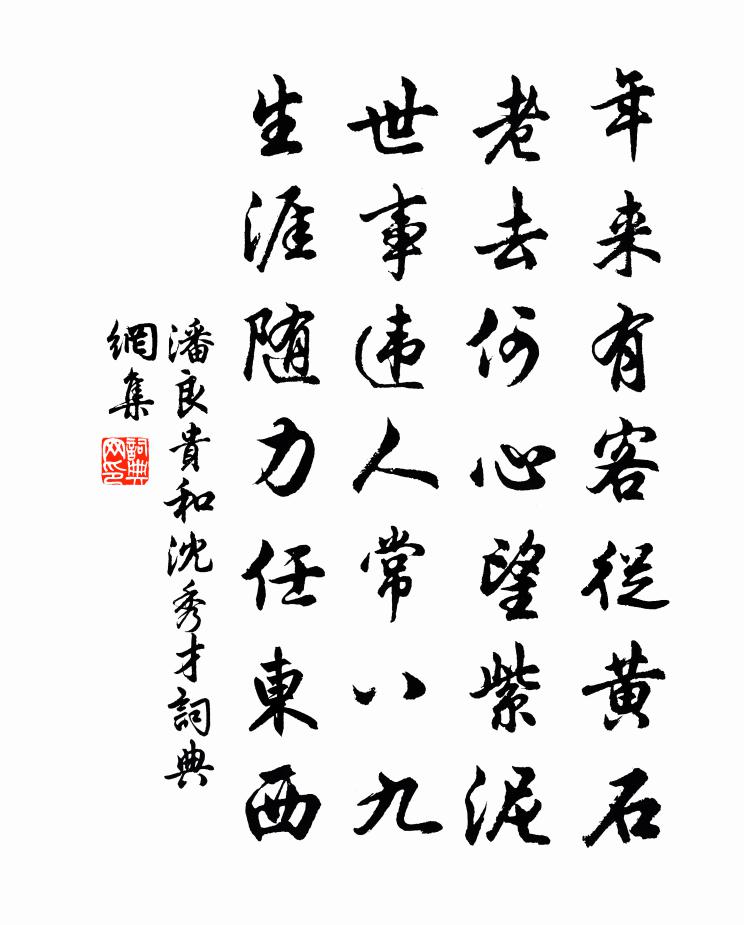 年来有客從黄石
老去何心望紫泥
世事违人常八九
生涯随力任東西
潘良貴和沈秀才詞典
網集
詞典
网印